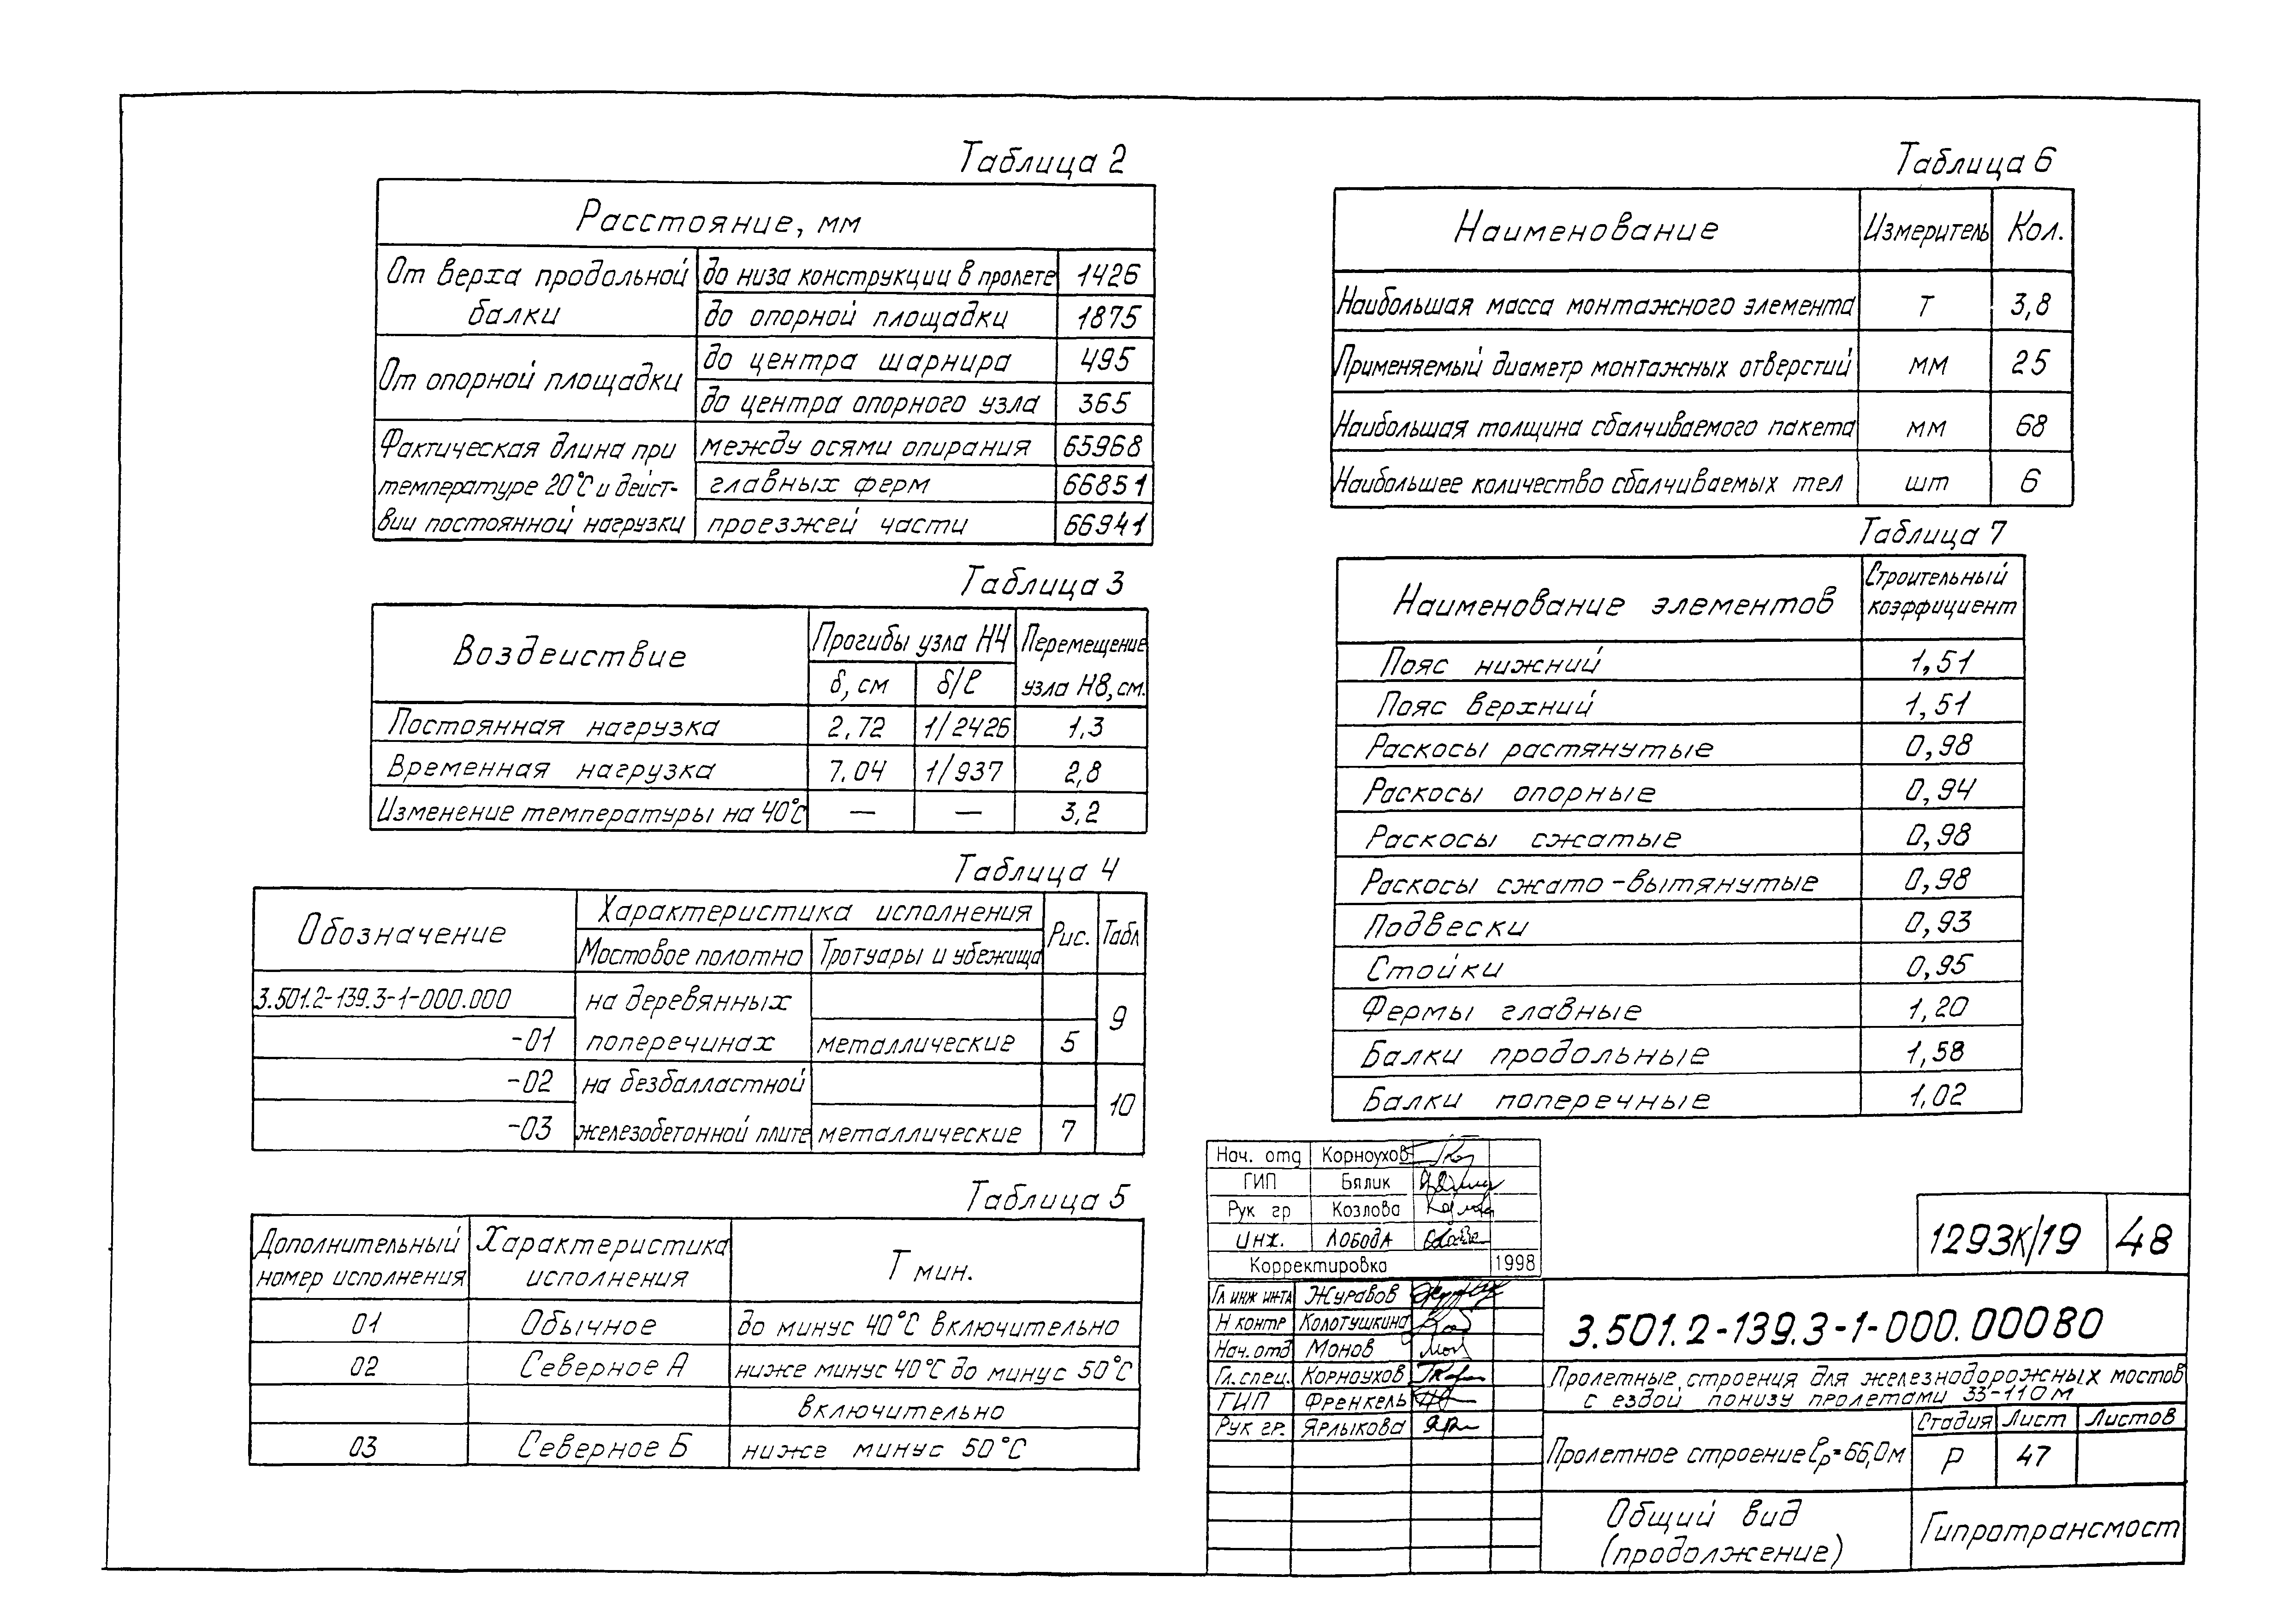 Таблица 2
Расстояние, мм
От верха продольной балки
до низа конструкции в пролете 1426
до опорной площадки 1875
От опорной площадки
до центра шарнира 495
до центра опорного узла 365
Фактическая длина при
температуре 20°С и дейст-
вии постоянной нагрузки
между осями опирания 65968
главных ферм 66851
проезжей части 66941
Таблица 3
Воздействие
Прогибы узла Н4
δ, см δ/ℓ
Перемещение
узла Н8, см.
Постоянная нагрузка 2.72 1/2426 1.3
Временная нагрузка 7.04 1/937 2,8
Изменение температуры на 40°С — — 3,2
Таблица 4
Обозначение
Характеристика исполнения
Мостовое полотно Тротуары и убежища
Рис. Табл
3.501.2-139.3-1-000.000 на деревянных 9
-01 поперечинах металлические 5
-02 на безбалластной 10
-03 железобетонной плите металлические 7
Таблица 5
Дополнительный
номер исполнения
Характеристика
исполнения
Т мин.
01 Обычное до минус 40°С включительно
02 Северное А ниже минус 40°С до минус 50°С
включительно
03 Северное Б ниже минус 50°С
Таблица 6
Наименование Измеритель Кол.
Наибольшая масса монтажного элемента т 3,8
Применяемый диаметр монтажных отверстий мм 25
Наибольшая толщина сбалчиваемого пакета мм 68
Наибольшее количество сбалчиваемых тел шт 6
Таблица 7
Наименование элементов
Строительный
коэффициент
Пояс нижний 1,51
Пояс верхний 1,51
Раскосы растянутые 0,98
Раскосы опорные 0,94
Раскосы сжатые 0,98
Раскосы сжато-вытянутые 0,98
Подвески 0,93
Стойки 0,95
Фермы главные 1,20
Балки продольные 1,58
Балки поперечные 1,02
Нач. отд Корноухов
ГИП Бялик
Рук гр Козлова
Инж. Лобода
Корректировка 1998
Гл инж инта Журавов
Н контр Колотушкина
Нач. отд Монов
Гл. спец. Корноухов
ГИП Френкель
Рук гр. Ярлыкова
1293К/19 48
3.501.2-139.3-1-000.000В0
Пролетные строения для железнодорожных мостов
с ездой понизу пролетами 33-110 м
Пролетное строение ℓр=66,0м
Стадия Лист Листов
Р 47
Общий вид
(продолжение)
Гипротрансмост